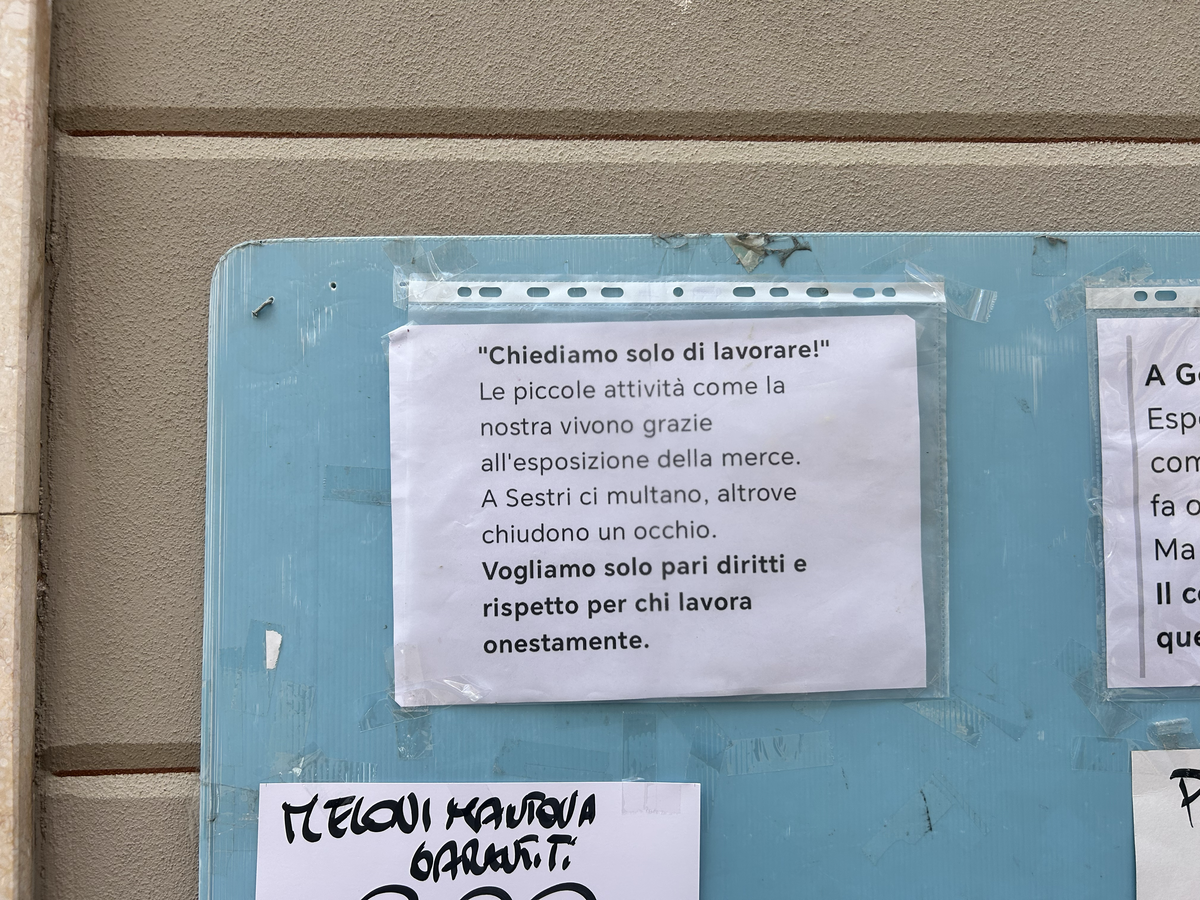 "Chiediamo solo di lavorare!"
Le piccole attività come la
nostra vivono grazie
all'esposizione della merce.
A Sestri ci multano, altrove
chiudono un occhio.
Vogliamo solo pari diritti e
rispetto per chi lavora
onestamente.
A
fa
Ma
Il
MELONI MANTOVA
GARANT.T.